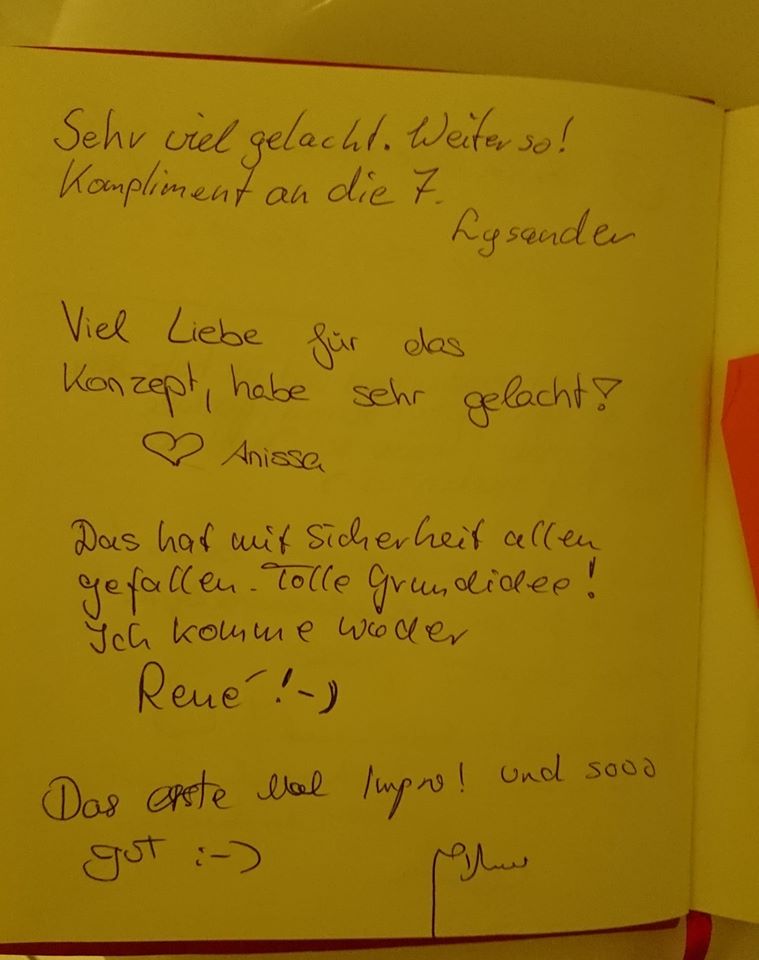 Sehr viel gelacht. Weiter so!
Kompliment an die 7.
Lysander
Viel Liebe für das
Konzept, habe sehr gelacht!
♡ Anissa
Das hat mit Sicherheit allen
gefallen. Tolle Grundidee!
Ich komme wieder
René !-)
Das erste Mal Impro! und sooo
gut :-)